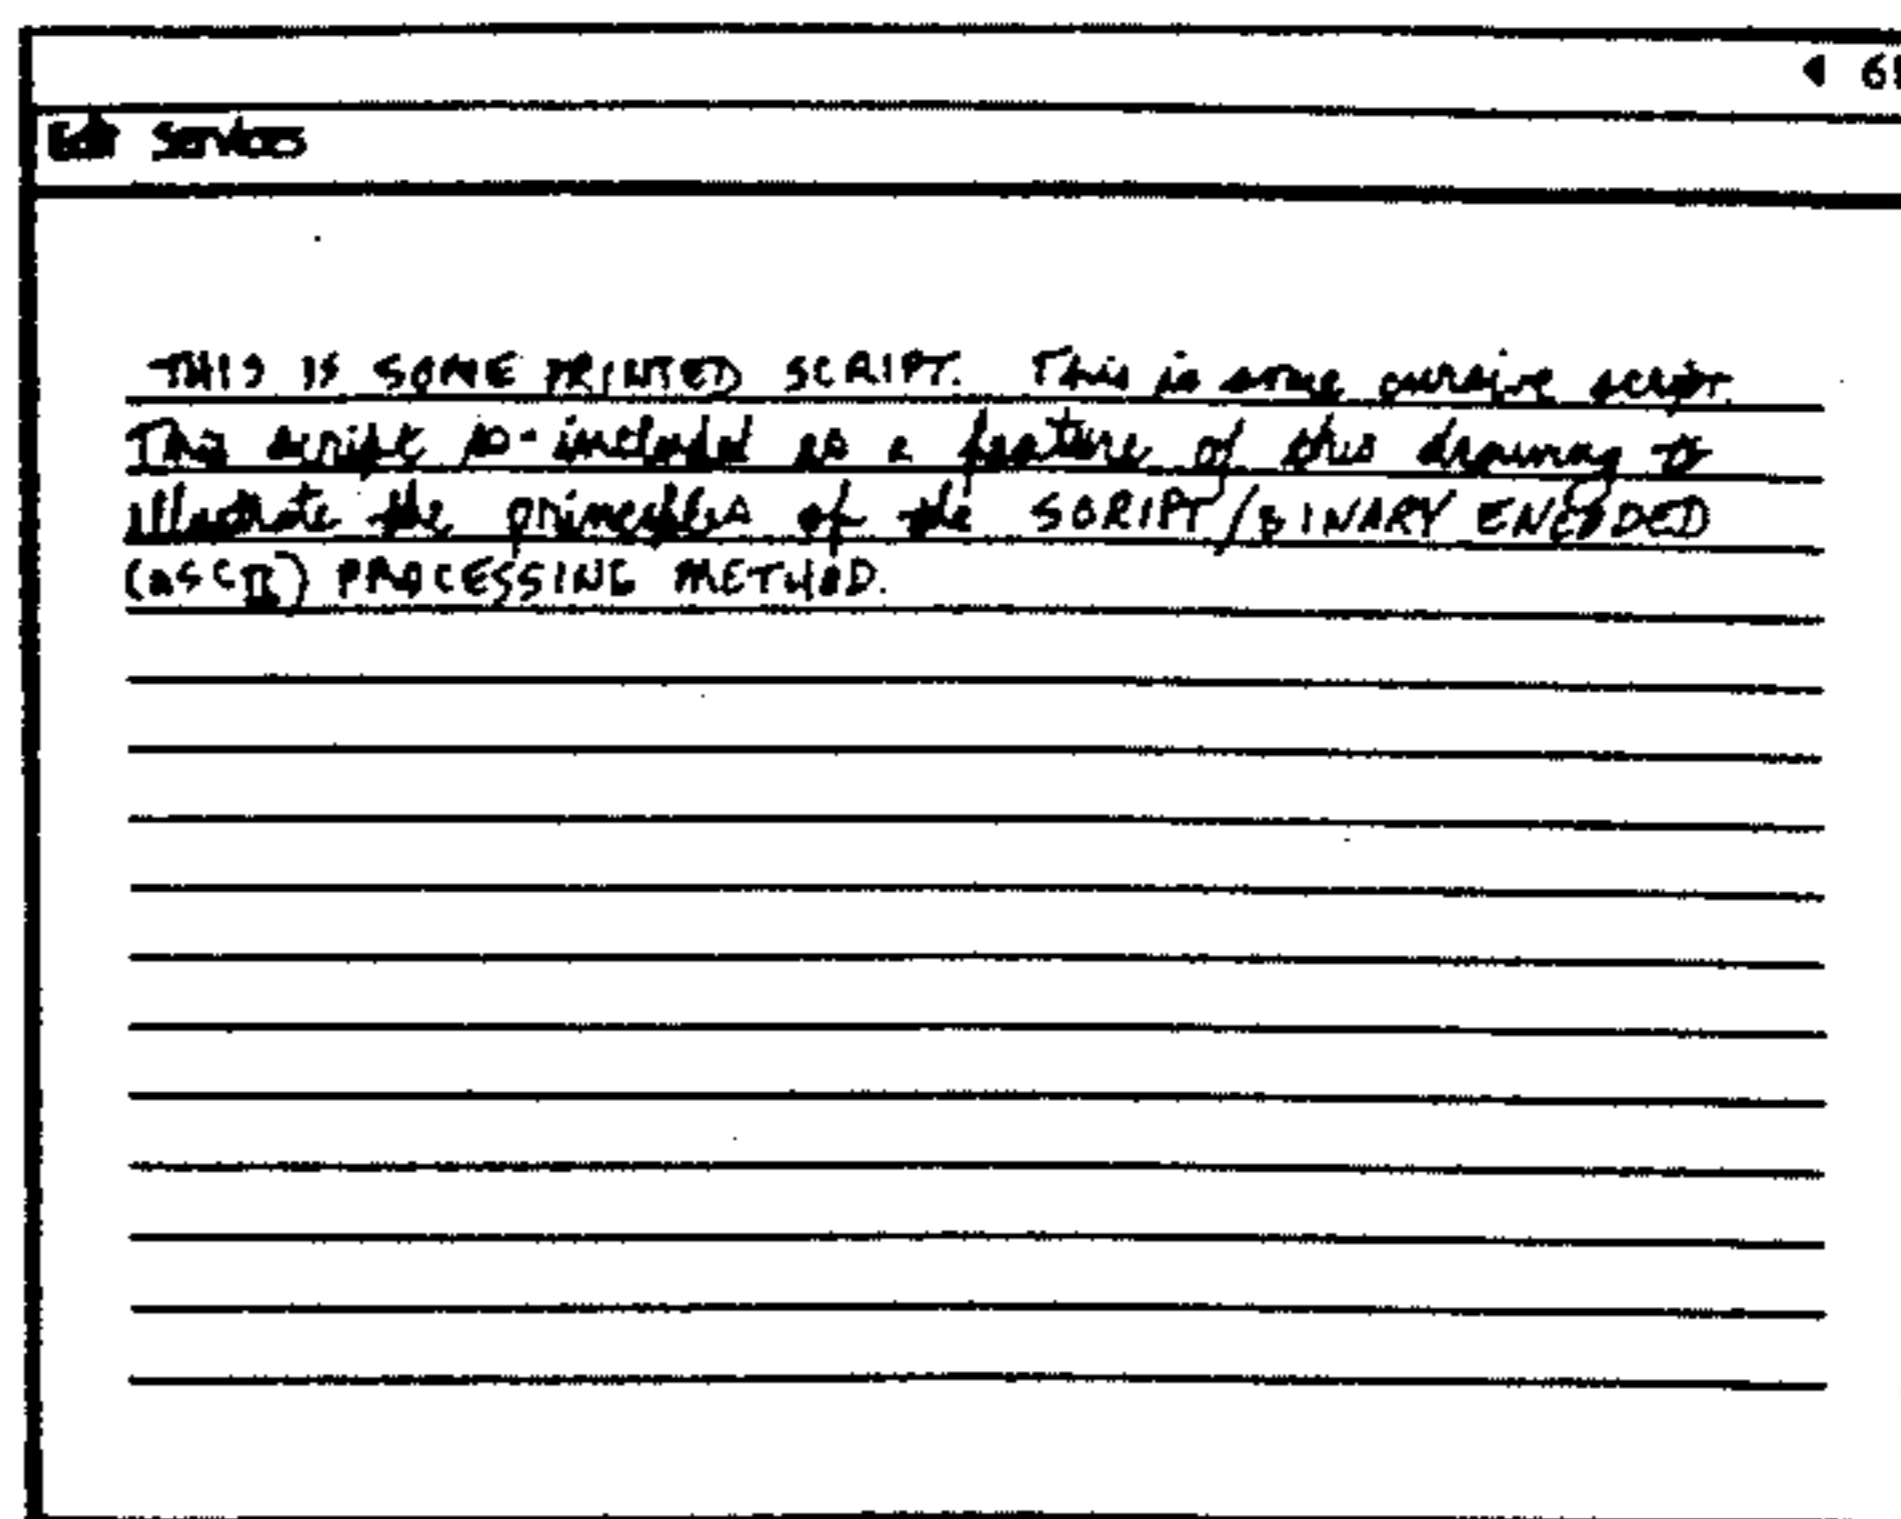 ◀ 61
Edit Services
THIS IS SOME PRINTED SCRIPT. This is some cursive script.
This script is included as a feature of this drawing to
illustrate the principles of the SCRIPT/BINARY ENCODED
(ASCII) PROCESSING METHOD.